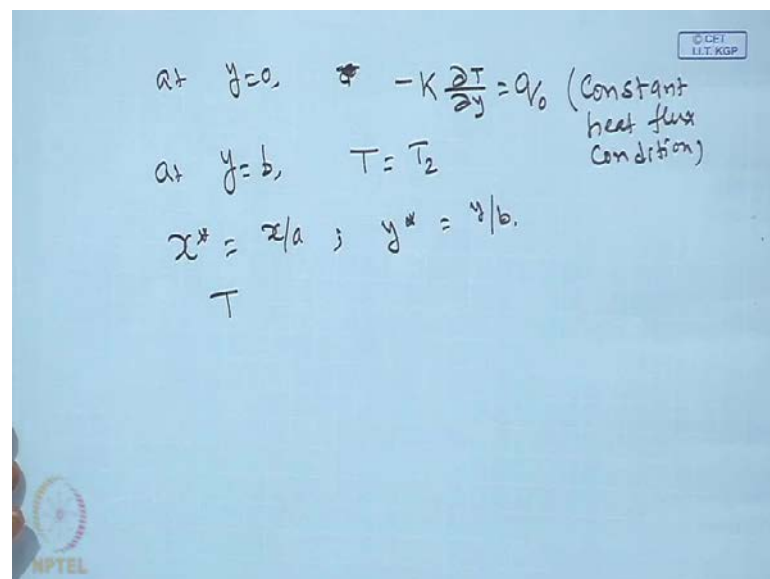 © CET
I.I.T. KGP
at y=0, -K ∂T/∂y = q₀ (Constant
heat flux
Condition)
at y=b, T = T₂
x* = x/a ; y* = y/b.
T
NPTEL